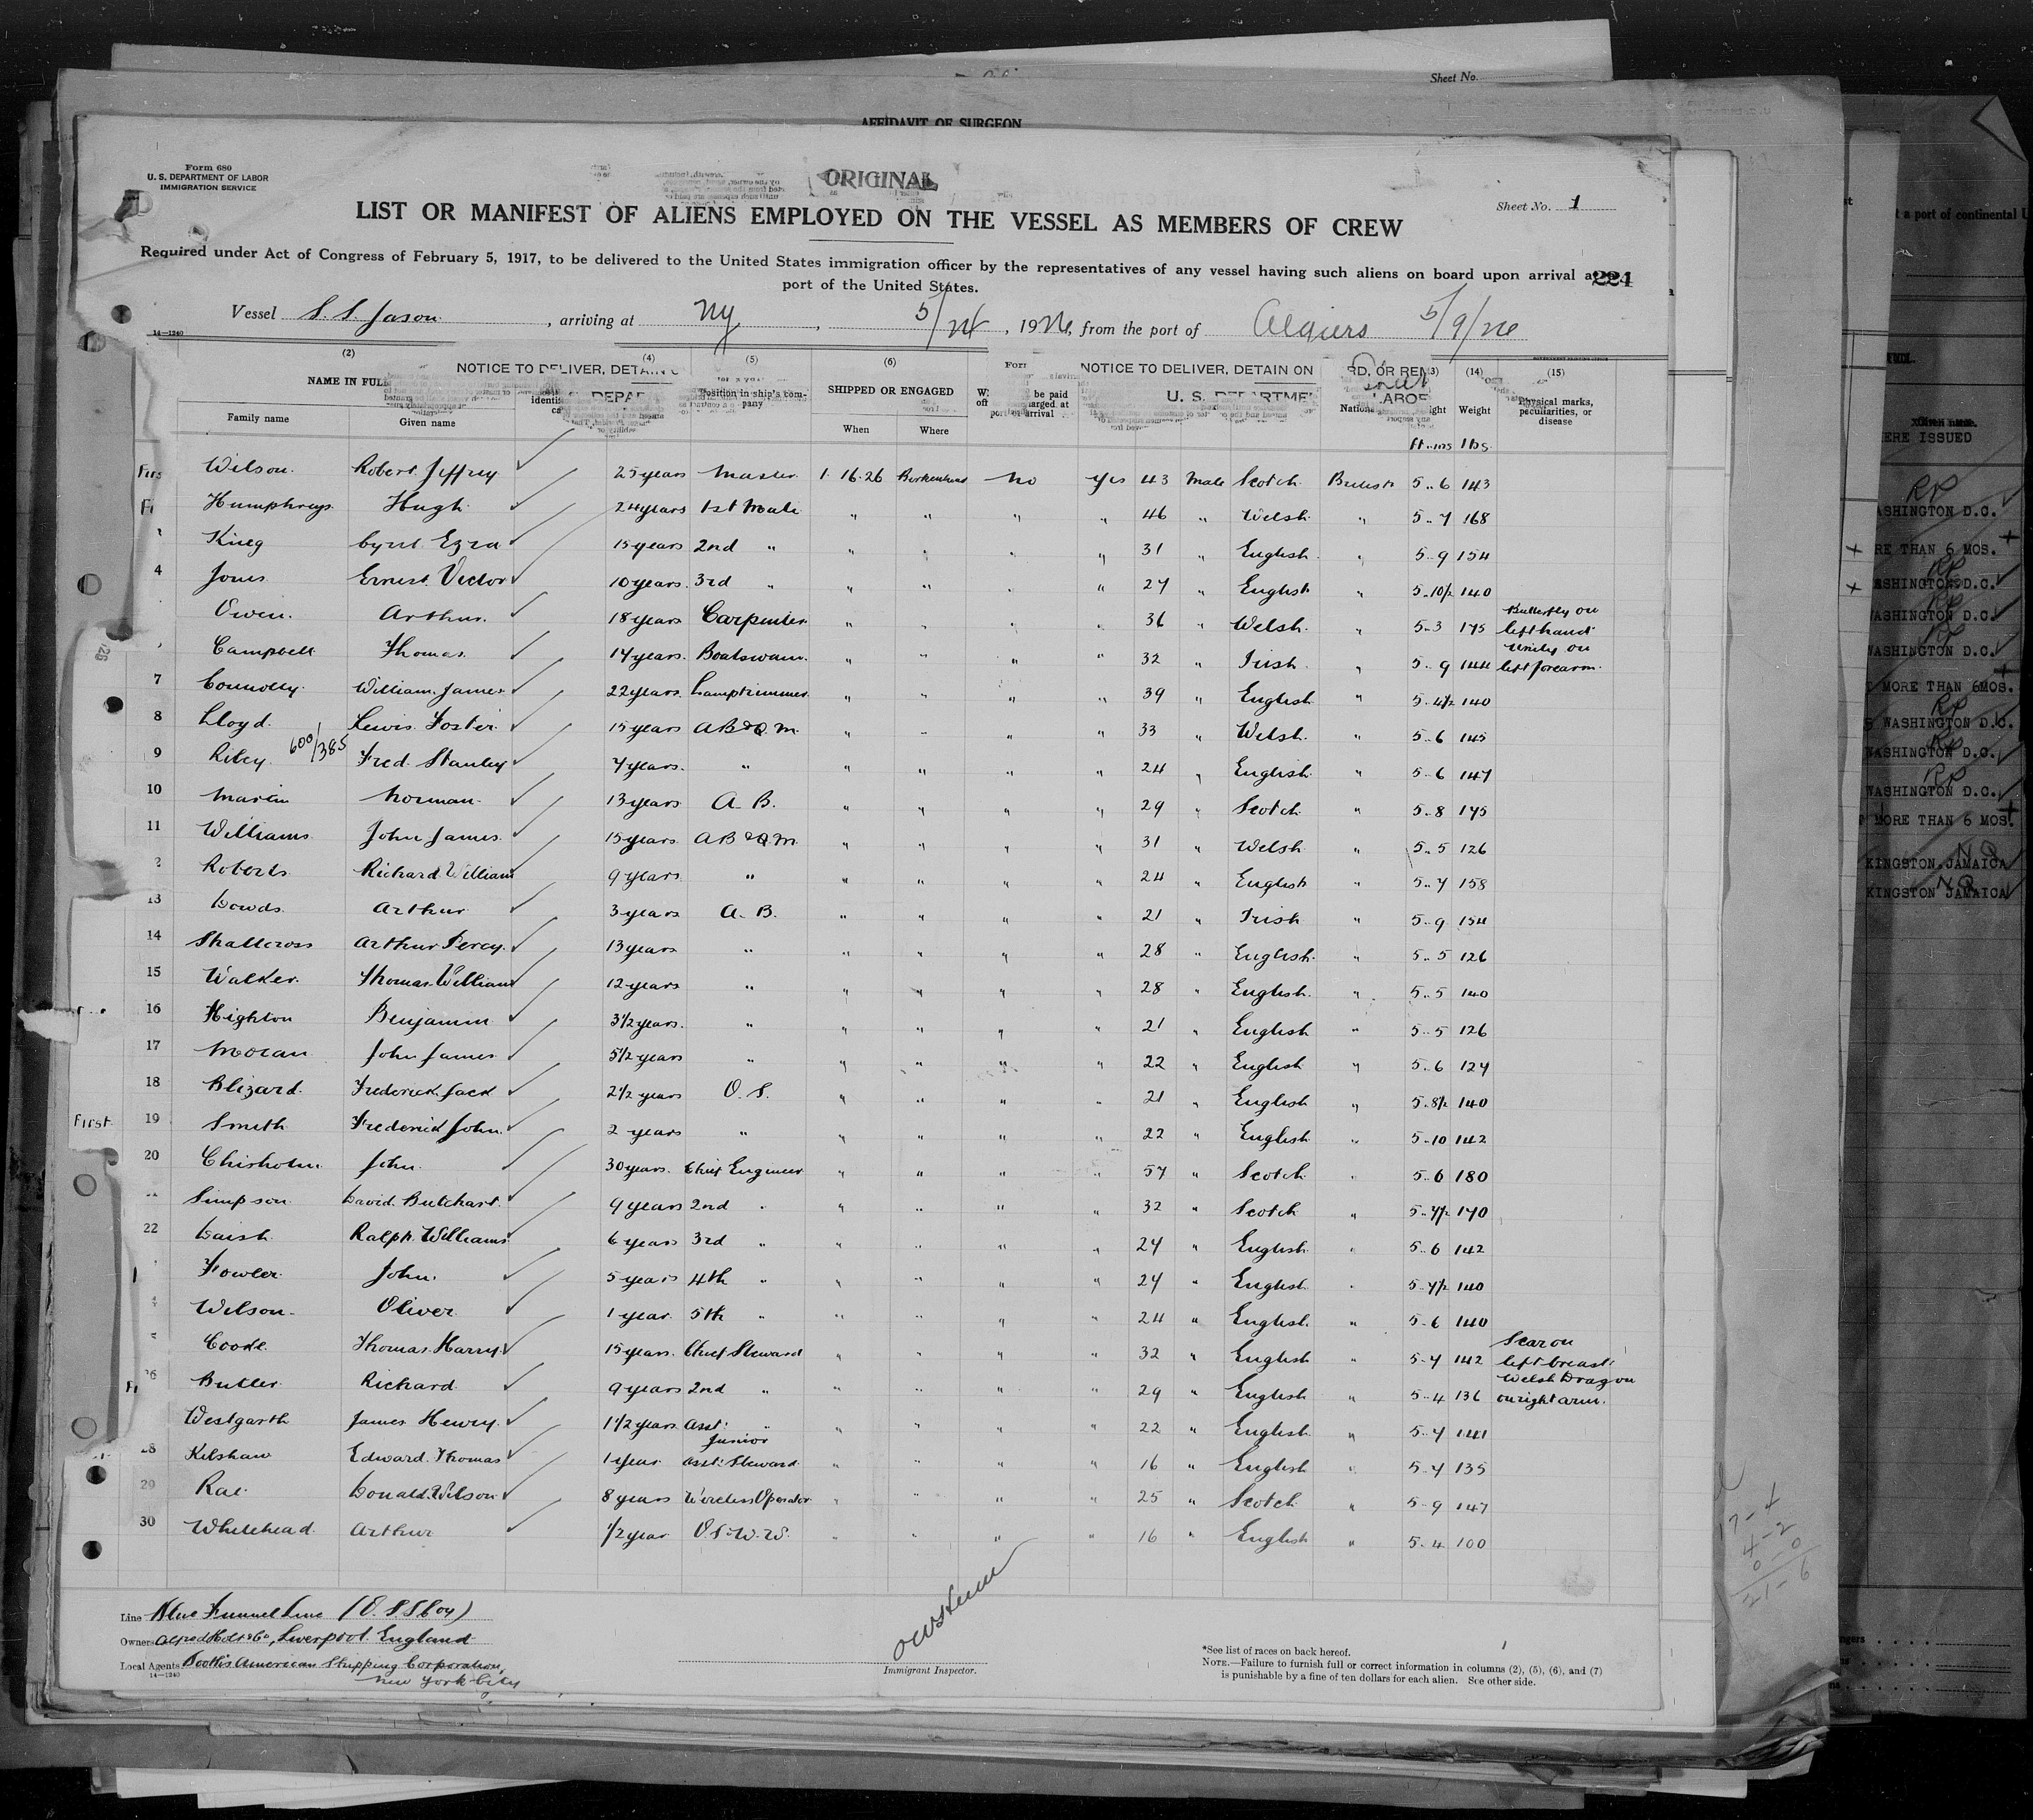 Sheet No.
AFFIDAVIT OF SURGEON
Form 680
U. S. DEPARTMENT OF LABOR
IMMIGRATION SERVICE
ORIGINAL
Sheet No. 1
LIST OR MANIFEST OF ALIENS EMPLOYED ON THE VESSEL AS MEMBERS OF CREW
Required under Act of Congress of February 5, 1917, to be delivered to the United States immigration officer by the representatives of any vessel having such aliens on board upon arrival a
221
port of the United States.
Vessel S. S. Jason, arriving at NY, 5/24, 1926, from the port of Algiers 5/9/26
14—1240
(2) (4) (5) (6) (14) (15)
NOTICE TO DELIVER, DETAIN O NOTICE TO DELIVER, DETAIN ON RD, OR REM
NAME IN FULL Position in ship's company SHIPPED OR ENGAGED U. S. DEPARTME LABOR
Family name Given name When Where Weight Physical marks, peculiarities, or disease
ft. ins lbs.
Wilson. Robert Jeffrey 25 years Master 1.16.26 Birkenhead No Yes 43 Male Scotch British 5..6 143
Humphreys. Hugh. 24 years 1st Mate " " " " 46 " Welsh. " 5..7 168
King Cyril Ezra 15 years 2nd " " " " " 31 " English. " 5..9 154
4 Jones. Ernest Victor 10 years. 3rd " " " " " 27 " English " 5..10½ 140
Owen. Arthur. 18 years Carpenter " " " " 36 " Welsh. " 5..3 175 Butterfly on left hand
Campbell Thomas. 14 years. Boatswain. " " " " 32 " Irish. " 5..9 144 Unity on left forearm.
7 Connolly. William James 22 years. Lamptrimmer " " " " 39 " English " 5..4½ 140
8 Lloyd. Lewis Foster 15 years AB & Q.M. " " " " 33 " Welsh. " 5..6 145
9 Riley. 600/385 Fred. Stanley 7 years. " " " " " 24 " English. " 5..6 147
10 Martin Norman. 13 years A. B. " " " " 29 " Scotch " 5..8 175
11 Williams John James. 15 years AB & Q.M. " " " " 31 " Welsh " 5..5 126
2 Roberts Richard William 9 years. " " " " " 24 " English " 5..7 158
13 Dowds. Arthur 3 years A. B. " " " " 21 " Irish " 5..9 154
14 Shallcross Arthur Percy. 13 years " " " " " 28 " English. " 5..5 126
15 Walker. Thomas William 12 years " " " " " 28 " English. " 5..5 140
16 Highton Benjamin 3½ years. " " " " " 21 " English " 5..5 126
17 Moran John James 5½ years " " " " " 22 " English " 5..6 124
18 Blizard. Frederick Jack 2½ years O. S. " " " " 21 " English " 5..8½ 140
First. 19 Smith Frederick John. 2 years " " " " " 22 " English " 5..10 142
20 Chisholm John. 30 years. Chief Engineer " " " " 57 " Scotch. " 5..6 180
Simpson David Butchart. 9 years 2nd " " " " " 32 " Scotch " 5..7½ 170
22 Daish Ralph Williams 6 years 3rd " " " " " 24 " English. " 5..6 142
Fowler. John. 5 years 4th " " " " " 24 " English. " 5..7½ 140
Wilson. Oliver 1 year. 5th " " " " " 24 " English. " 5..6 140
Coode. Thomas Harry 15 years. Chief Steward " " " " 32 " English " 5..7 142 Scar on left breast.
26 Butler. Richard. 9 years 2nd " " " " " 29 " English " 5..4 136 Welsh Dragon on right arm.
Westgarth James Henry. 1½ years. Asst. " " " " " 22 " English. " 5..7 141
28 Kelshaw Edward Thomas 1 year Junior Asst. Steward " " " " 16 " English " 5..7 135
29 Rae. Donald Wilson 8 years Wireless Operator. " " " " 25 " Scotch. " 5..9 147
30 Whitehead. Arthur ½ year O.S. W.W. " " " " 16 " English " 5..4 100
Line Blue Funnel Line (O. S. S. Coy)
Owners Alfred Holt & Co, Liverpool. England
Local Agents Booth's American Shipping Corporation,
14—1240
New York City
Immigrant Inspector.
*See list of races on back hereof.
NOTE.—Failure to furnish full or correct information in columns (2), (5), (6), and (7)
is punishable by a fine of ten dollars for each alien. See other side.
17-4
4-2
0-0
21-6
t a port of continental U
ERE ISSUED
ASHINGTON D.C.
RE THAN 6 MOS.
ASHINGTON D.C.
WASHINGTON D.C.
WASHINGTON D.C.
T MORE THAN 6MOS.
S WASHINGTON D.C.
WASHINGTON D.C.
WASHINGTON D.C.
T MORE THAN 6 MOS.
KINGSTON JAMAICA
KINGSTON JAMAICA